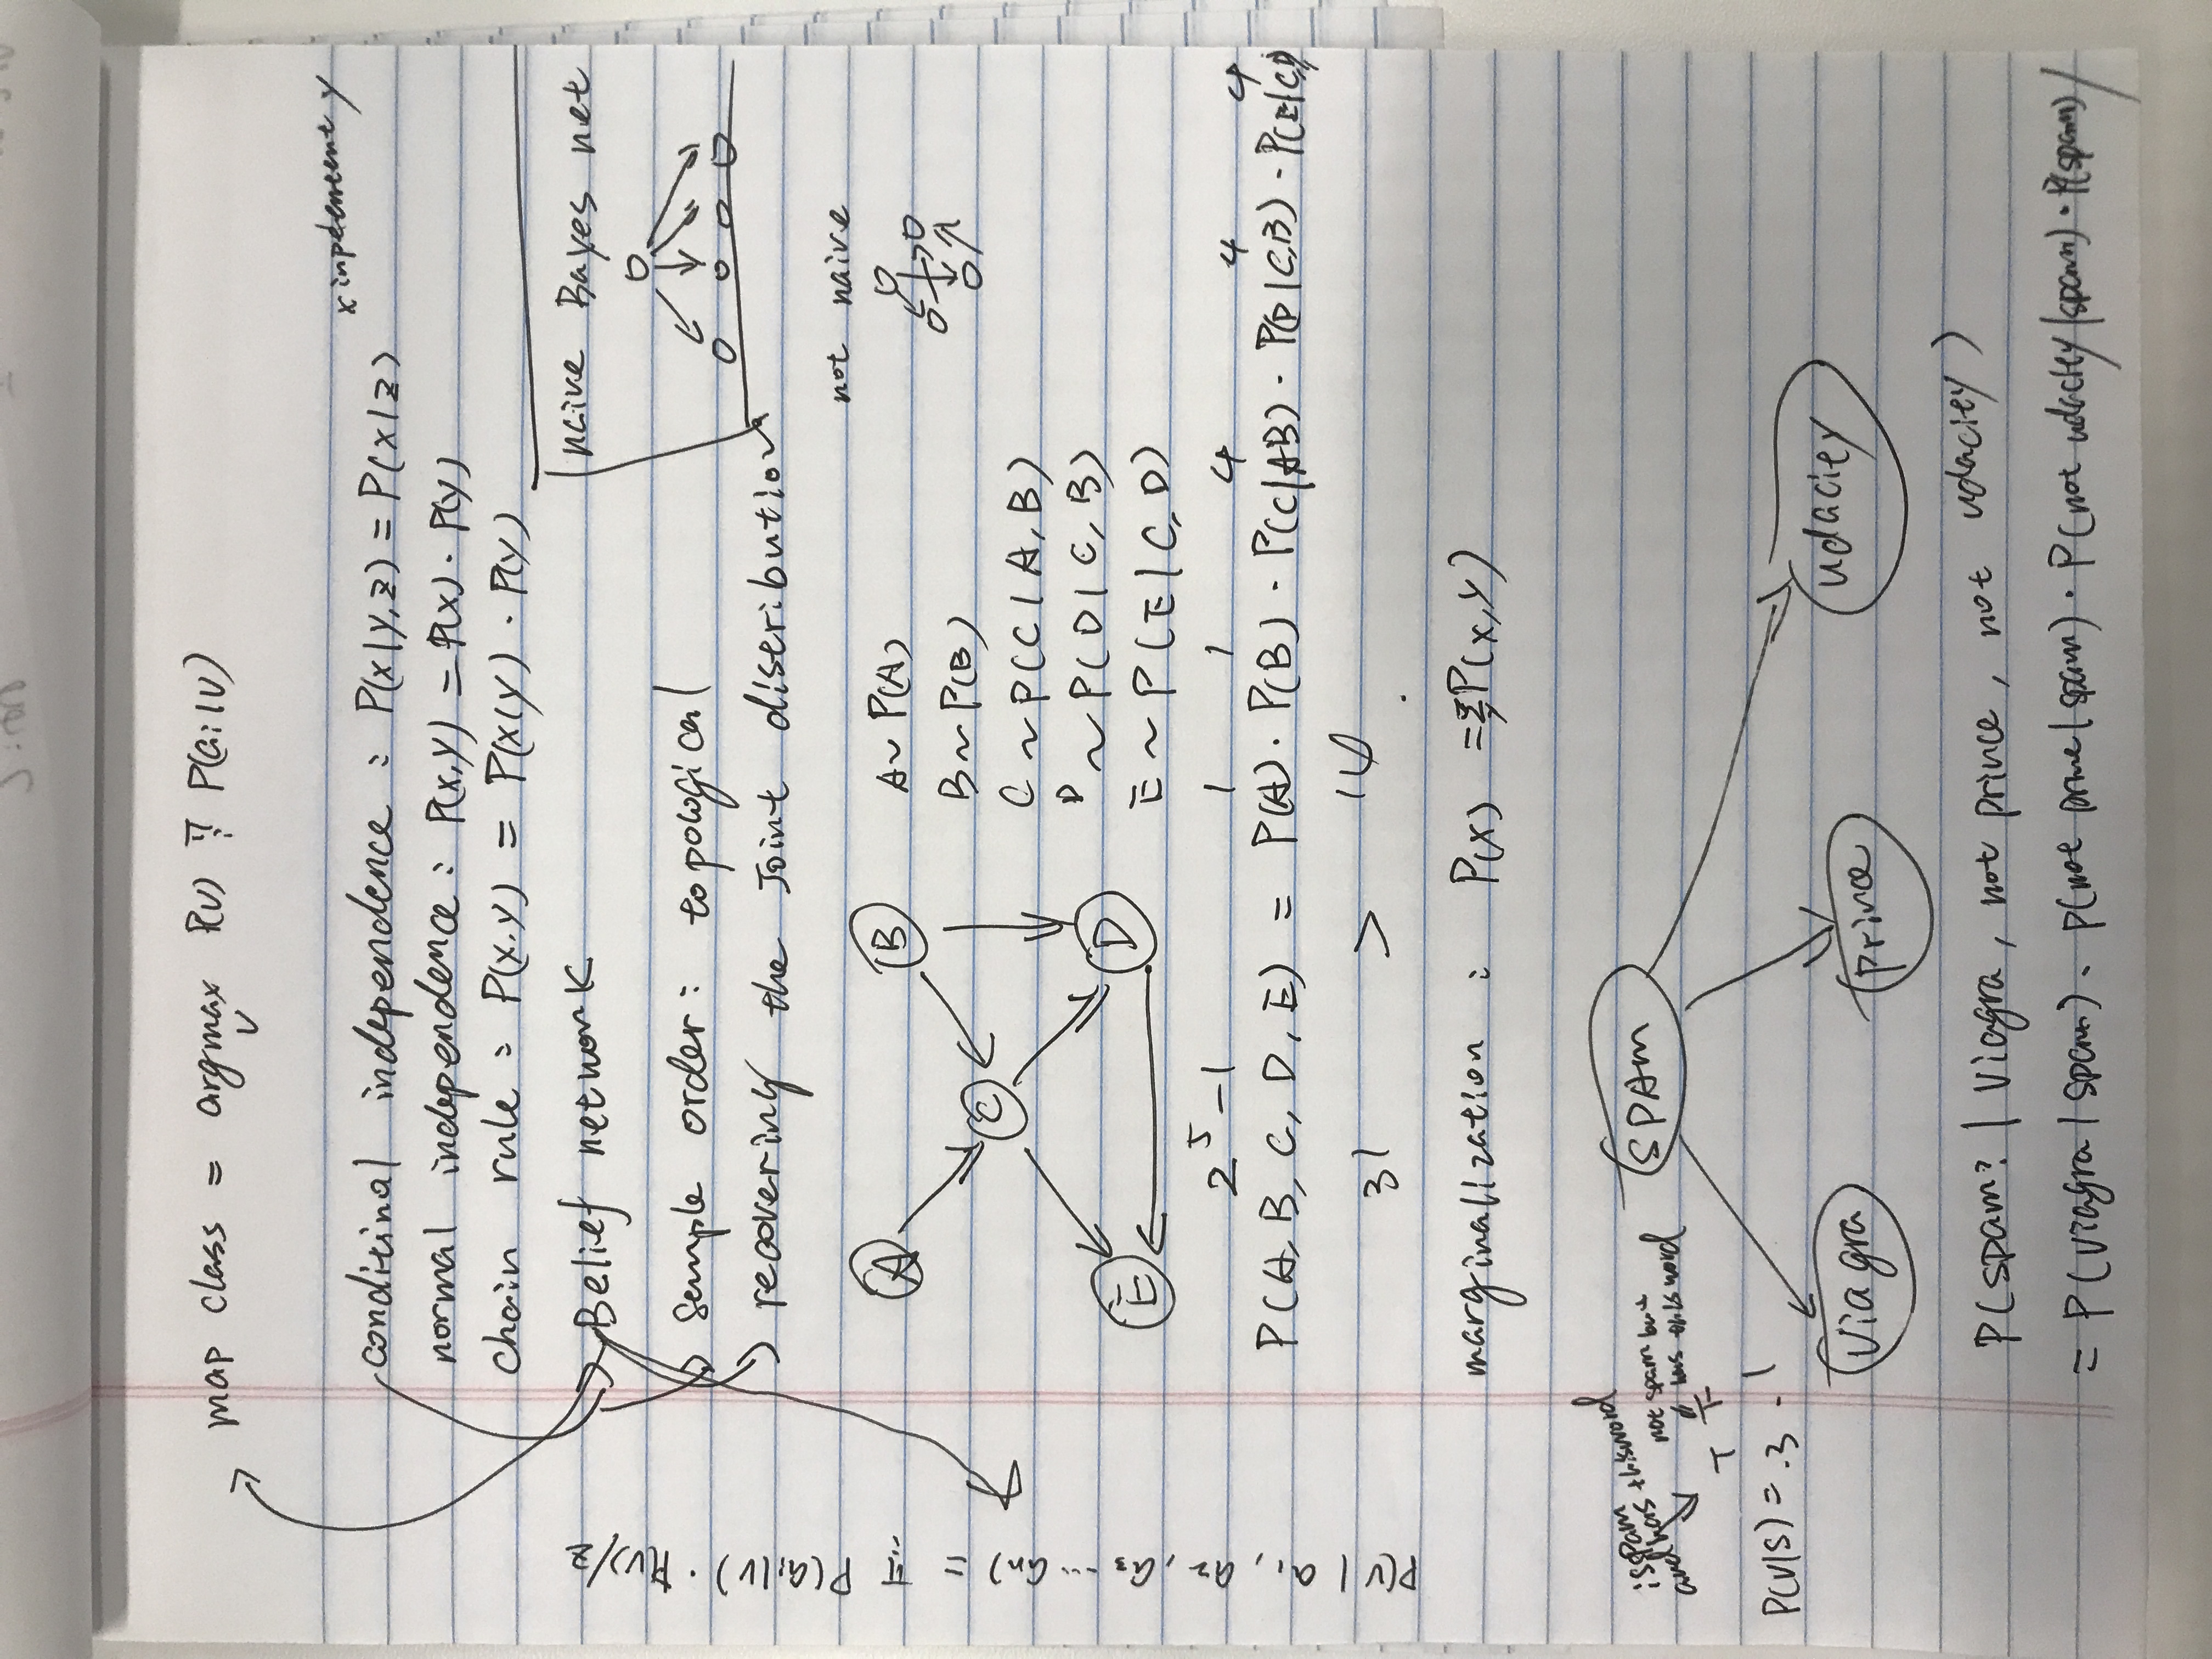 map class = argmax P(v) Π P(ai|v)
v i
x inpdenteent y
conditinal independence : P(x|y,z) = P(x|z)
normal independence : P(x,y) = P(x) · P(y)
chain rule : P(x,y) = P(x|y) · P(y)
Belief network
naive Bayes net
sample order : topological
recovering the Joint distribution
P(v | a1, a2, a3 ... an) = Π P(ai|v) · P(v)/z
i
not naive
A B
C
E D
A ~ P(A)
B ~ P(B)
C ~ P(C | A, B)
D ~ P(D | C, B)
E ~ P(E | C, D)
2^5 - 1 1 1 4 4 4
P(A, B, C, D, E) = P(A) · P(B) · P(C|AB) · P(D|C,B) · P(E|C,D)
31 > 14
marginalization : P(x) = Σ P(x,y)
is spam
and has this word
not spam but
has this word
T F
P(V|S) = .3 .1
SPAm
Viagra prince udacity
P(spam? | Viagra, not prince, not udacity)
= P(viagra | spam) · P(not prince | spam) · P(not udacity | spam) · P(spam) /